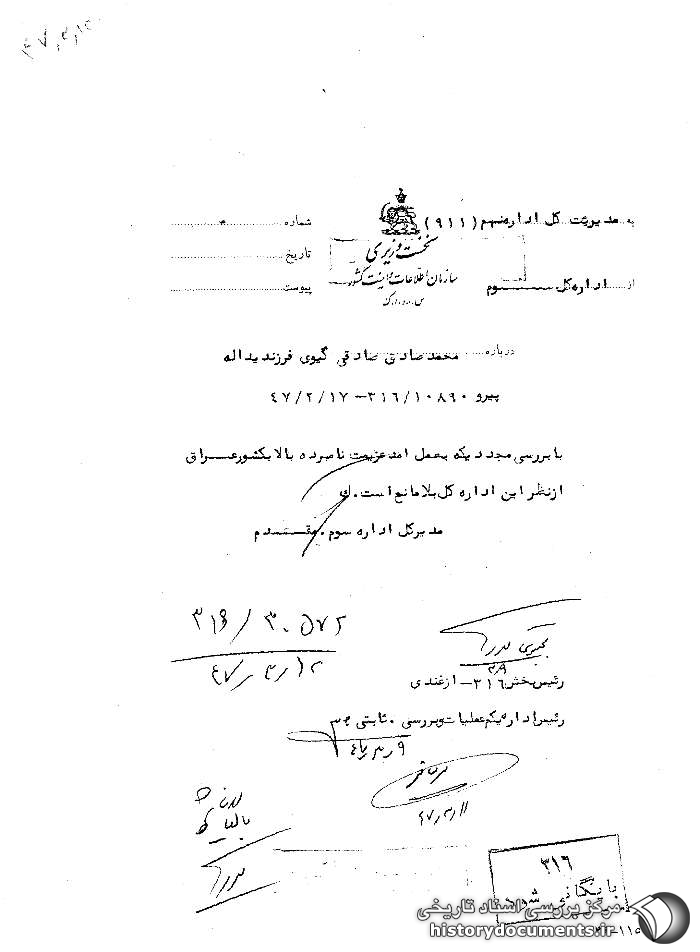 ۴۷,۳,۱۲
به مدیریت کل اداره نهم (۹۱۱)
شماره
نخست وزیری
تاریخ
سازمان اطلاعات و امنیت کشور
از اداره کل سوم
پیوست
س.ا.و.ا.ک
درباره محمد صادق صادقی گیوی فرزند یداله
پیرو ۳۱۶/۱۰۸۹۰ – ۴۷/۲/۱۷
با بررسی مجددیکه بعمل امد عزیمت نامبرده بالا بکشور عراق
از نظر این اداره کل بلامانع است. ک
مدیرکل اداره سوم. مقدم
۳۱۶/۳۰۵۷۲
۴۷/۳/۱۲
۳/۹
رئیس بخش ۳۱۶ – ازغندی
رئیس اداره یکم عملیات و بررسی. ثابتی
۴۷/۳/۹
۴۷/۳/۱۱
۳۱۶
بایگانی شود
مرکز بررسی اسناد تاریخی
historydocuments.ir